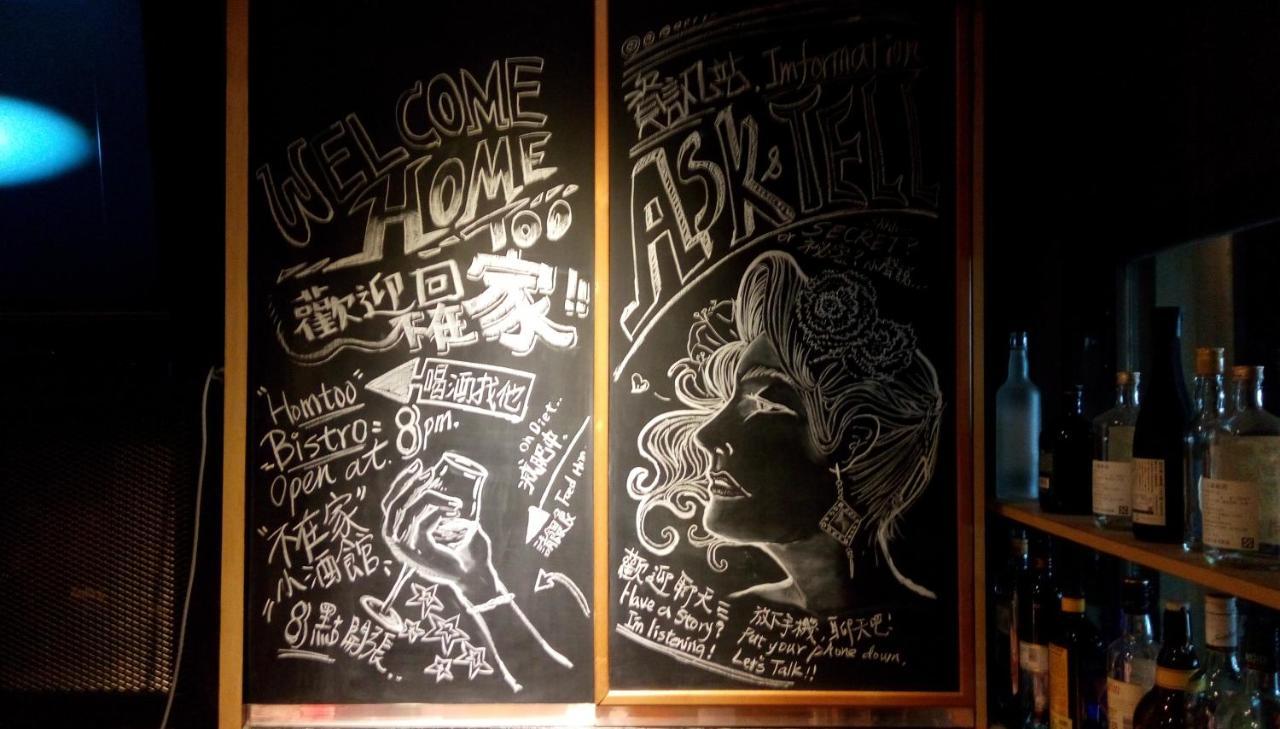 WELCOME
HOME
TOO
歡迎回家!!
不在
喝酒找他
"Homtoo"
"Bistro"
Open at 8pm.
"不在家"
"小酒館"
8點開張..
on Diet..
減肥中.
Feed Him
請餵食
資訊站.Imformation
ASK & TELL
or SECRET?
秘密?小聲說...
歡迎聊天
Have a Story?
I'm listening!
放下手機,聊天吧!
Put your phone down,
Let's Talk!!